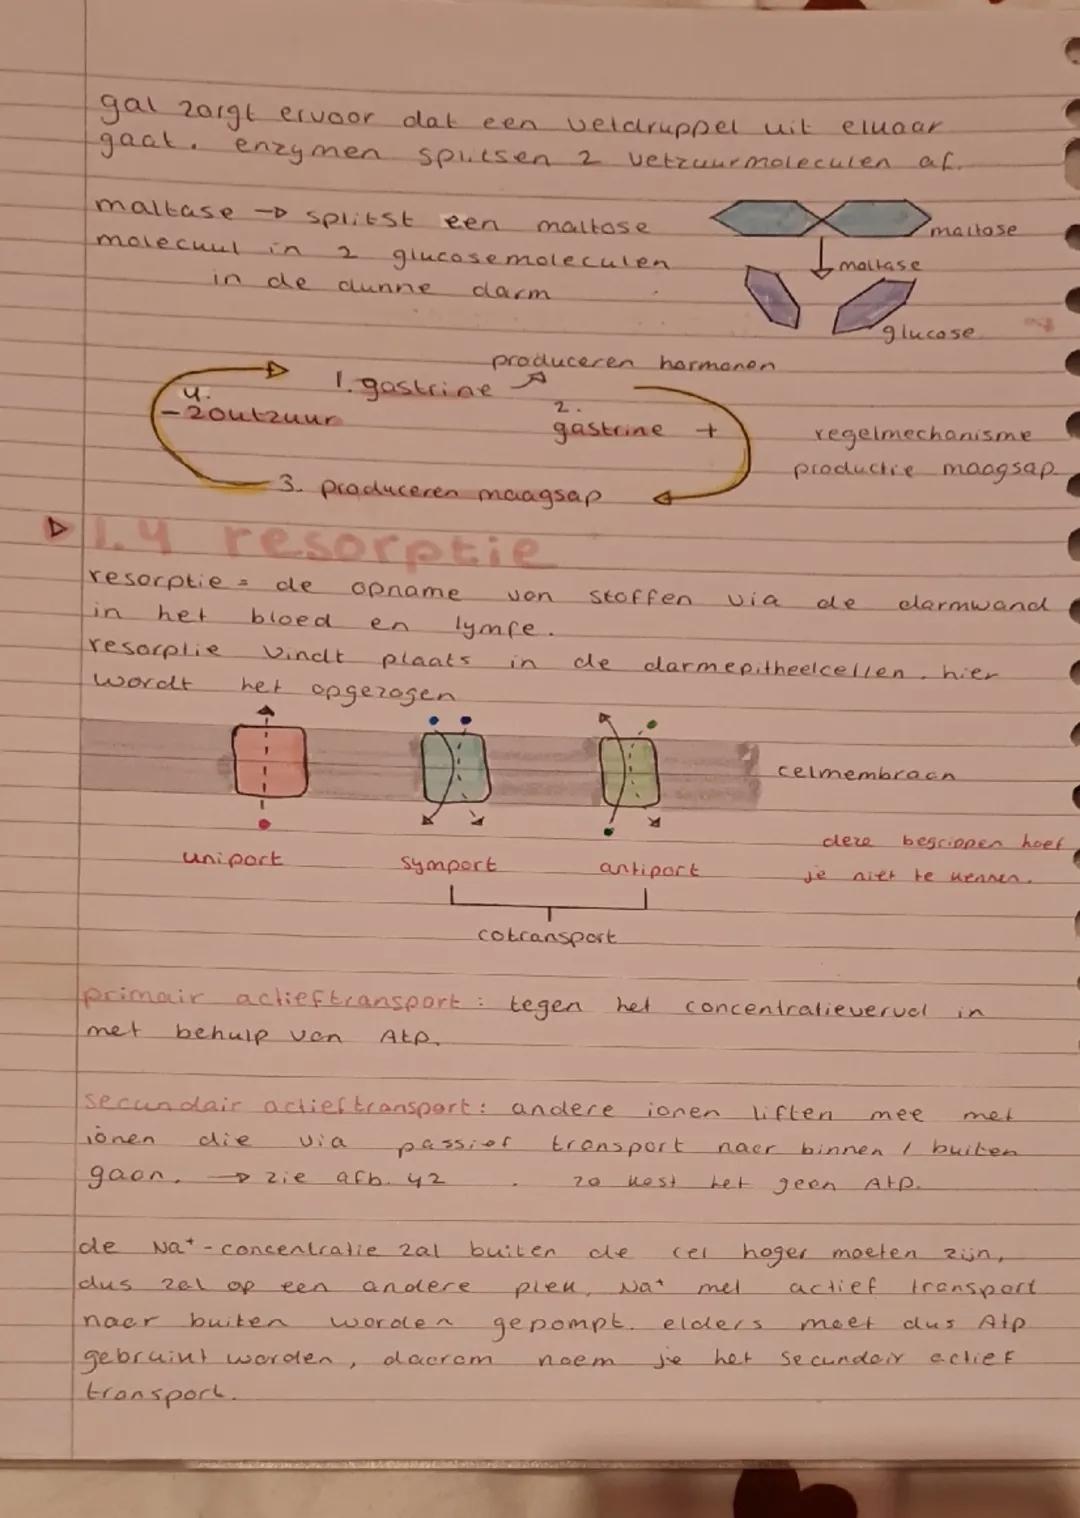 gal zorgt ervoor dat een vetdruppel uit elkaar
gaat. enzymen splitsen 2 vetzuurmoleculen af.
maltase → splitst een maltose
molecuul in 2 glucosemoleculen
in de dunne darm
maltose
maltase
glucose
produceren hormonen
1. gastrine
4.
- zoutzuur
2.
gastrine +
3. produceren maagsap
regelmechanisme
productie maagsap
1.4 resorptie
resorptie = de opname van stoffen via de darmwand
in het bloed en lymfe.
resorptie vindt plaats in de darmepitheelcellen. hier
wordt het opgezogen
celmembraan
uniport
symport
antiport
cotransport
deze begrippen hoef
je niet te kennen.
primair actieftransport: tegen het concentratieverval in
met behulp van Atp.
secundair actieftransport: andere ionen liften mee met
ionen die via passief transport naar binnen / buiten
gaan. → zie afb. 42 . zo kost het geen Atp.
de Na⁺-concentratie zal buiten de cel hoger moeten zijn,
dus zal op een andere plek, Na⁺ met actief transport
naar buiten worden gepompt. elders moet dus Atp
gebruikt worden, daarom noem je het secundair actief
transport.